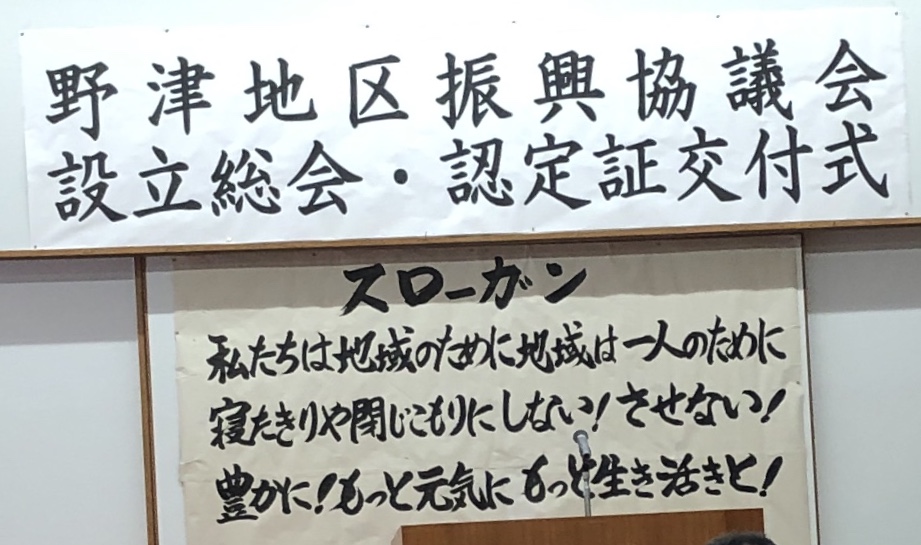 野津地区振興協議会
設立総会・認定証交付式
スローガン
私たちは地域のために地域は一人のために
寝たきりや閉じこもりにしない!させない!
豊かに!もっと元気にもっと生き活きと!